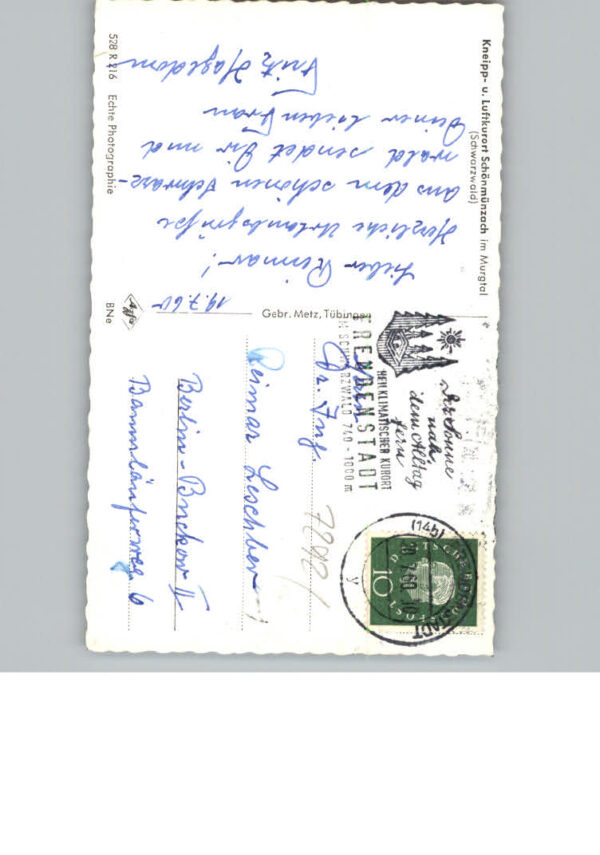 Kneipp- u. Luftkurort Schönmünzach im Murgtal
(Schwarzwald)
19.7.60
Lieber Reimar!
Herzliche Urlaubsgrüße
aus dem schönen Schwarz-
wald sendet Dir und
Deiner lieben Frau
Fritz Hagedorn
528 R 216 Echte Photographie
Agfa
BNe
Gebr. Metz, Tübingen
Der Sonne
nah,
dem Alltag
fern
HEILKLIMATISCHER KURORT
FREUDENSTADT
IM SCHWARZWALD 740 - 1000 m
(14b)
20.7.60
y
DEUTSCHE BUNDESPOST
10
Herrn
Dr. Ing.
Reimar Leschber
Berlin-Buckow II
Baumläuferweg 6